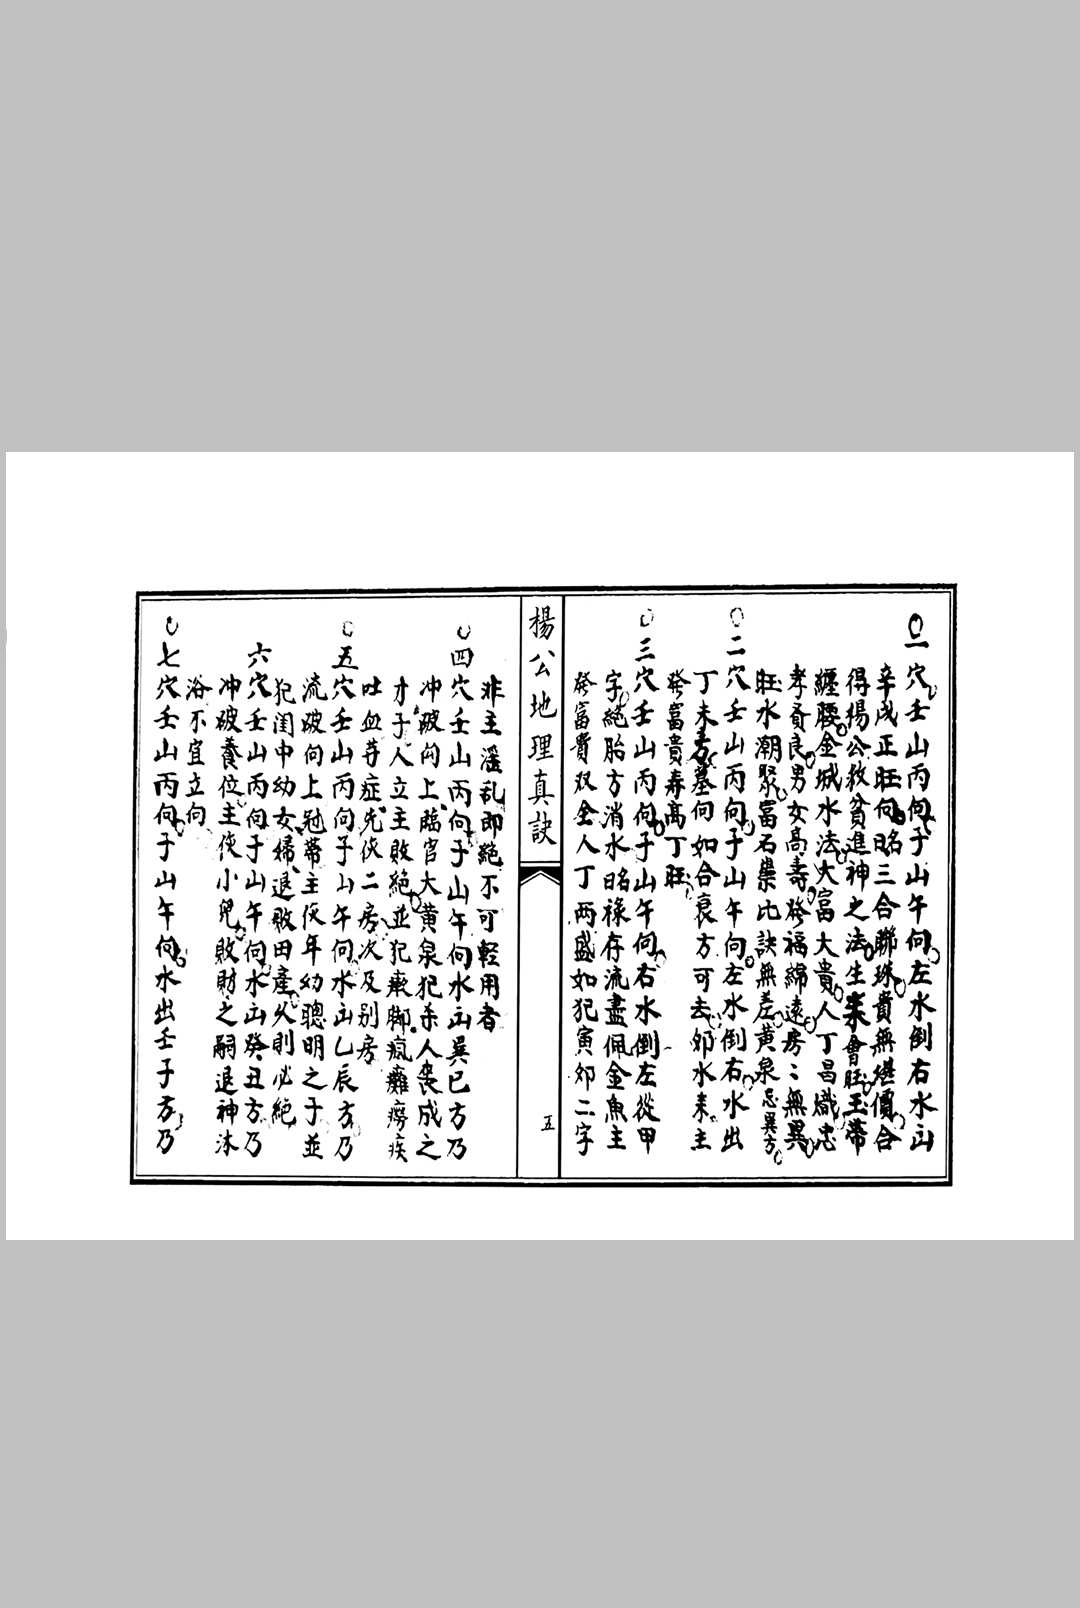 一穴壬山丙向子山午向左水倒右水出
辛戌正旺向昭三合聯珠貴無堪價合
得楊公救貧進神之法生來會旺玉帶
纏腰金城水法大富大貴人丁昌熾忠
孝賢良男女高壽發福綿遠房〻無異
旺水潮聚富石崇比訣無差黃泉忌巽方
二穴壬山丙向子山午向左水倒右水出
丁未方墓向如合衰方可去郊水来主
發富貴寿高丁旺
三穴壬山丙向子山午向右水倒左從甲
字絕胎方消水昭祿存流盡佩金魚主
發富貴双全人丁両盛如犯寅邜二字
楊公地理真訣
五
非主滛乱即絕不可輕用者
四穴壬山丙向子山午向水出巽巳方乃
冲破向上臨官大黃泉犯杀人喪成之
才子人立主敗絕並犯瘶脚瘋癱癆疾
吐血等症先伤二房次及别房
五穴壬山丙向子山午向水出乙辰方乃
流破向上冠帶主伤年幼聰明之子並
犯閨中幼女婦退敗田產久則必絕
六穴壬山丙向子山午向水出癸丑方乃
冲破養位主伤小兒敗財之嗣退神沐
浴不宜立向
七穴壬山丙向子山午向水出壬子方乃